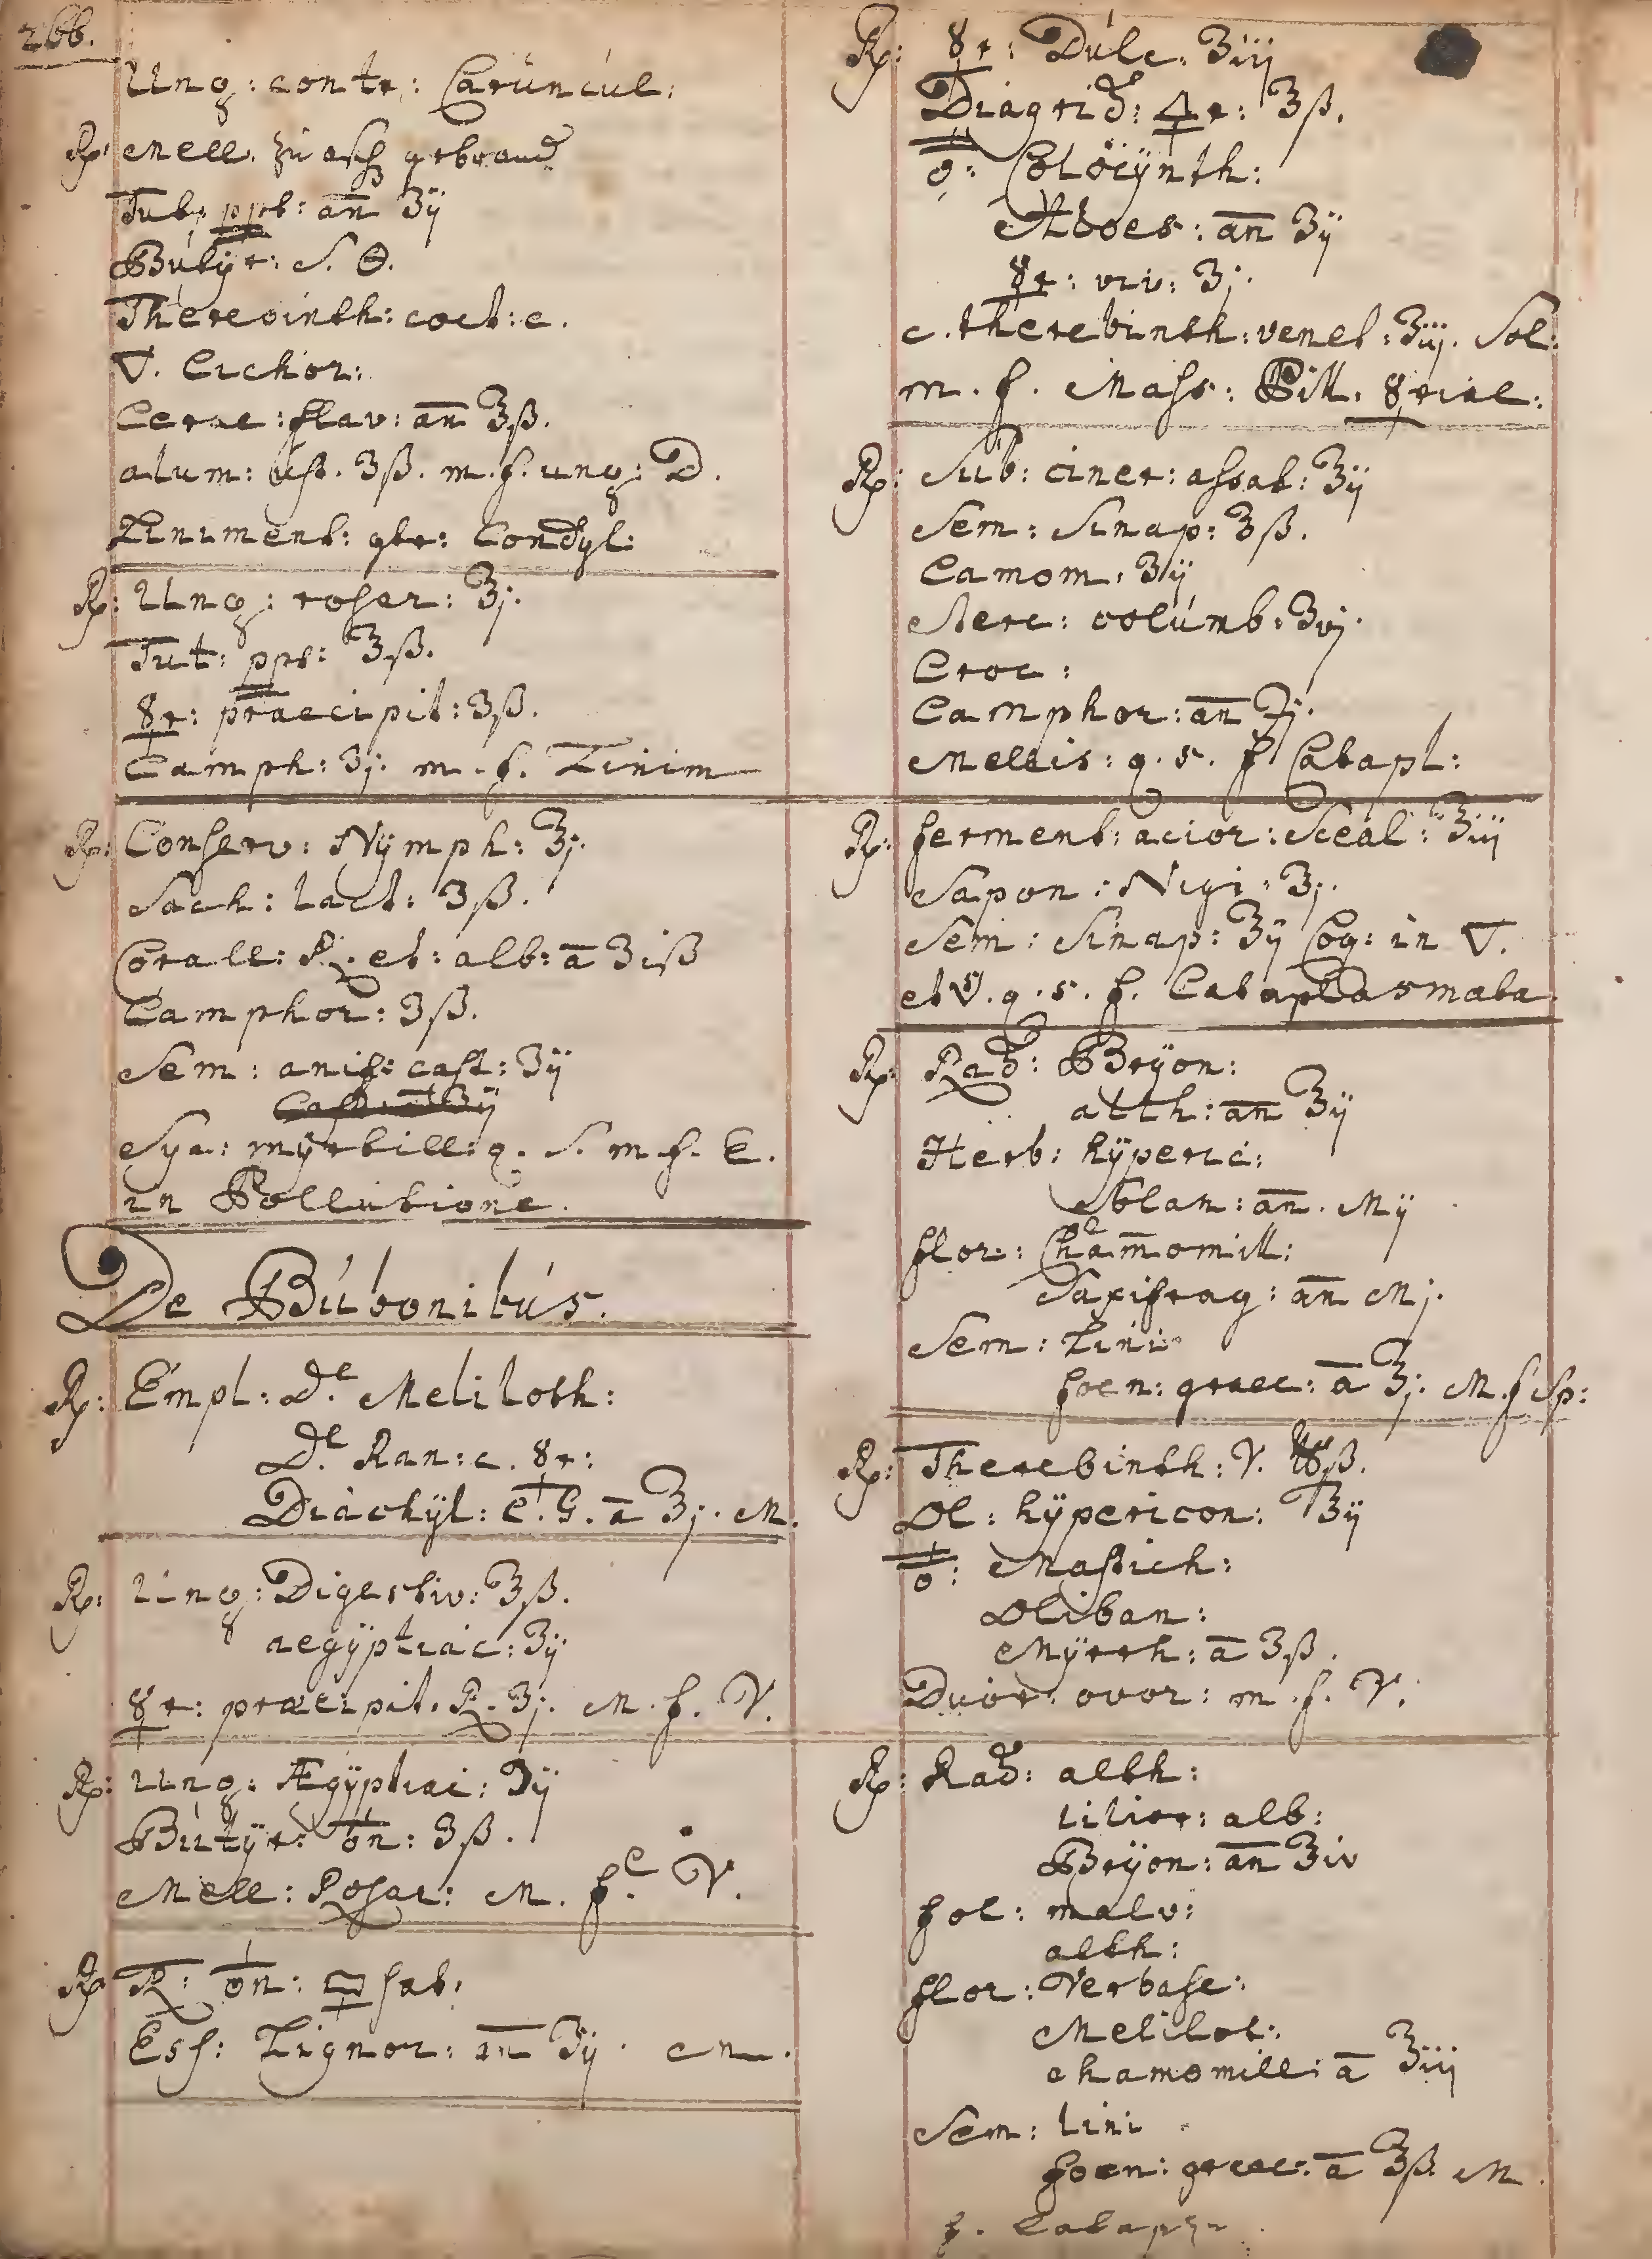 266.
Ung: contr: Carúncúl:
℞: Mell. zú asch gebrand
Tut: ppt: an̄ ʒij
Bútÿr: S. 🜔.
Therebinth: coct: c.
▽. Cichor:
Cerae: flav: an̄ ℥ß.
alum: úst. ʒß. m. f. ung: D.
Liniment: gtr: Condyl:
℞: Ung: rosar: ℥j.
Tut: ppt: ℥ß.
☿r: praecipit: ʒß.
Camph: ʒj. m. f. Linim
℞: Conserv: Nÿmph: ℥j.
Sach: lact: ʒß.
Corall: R. et: alb: a̅ ʒiß
Camphor: ʒß.
Sem: anis: cast: ʒij
Syr: mÿrtill: q. S. m. f. E.
in Pollutione.
De Búbonibús.
℞: Empl: De Meliloth:
De Ran: c. ☿r:
Diachÿl: c. G. a̅ ℥j. M.
℞: Ung: Digestiv: ℥ß.
aegÿptiac: ʒij
☿r: praecipit. R. ʒj. M. f. V.
℞: Ung: Ægÿptiac: ʒij
Bútÿr: ♁n: ʒß.
Mell: Rosar: M. fe V.
℞ R: ♁n: sat:
Ess: Lignor: an̄ ʒij. M.
℞: ☿r: Dúlc: ʒiij
Diagrid: 🜍r: ʒß.
Colöcÿnth:
Aloes: an̄ ʒij
☿r: viv: ʒj.
c. therebinth: venet: ʒiij. Sol:
m. f. Mass: Pill. ☿rial:
℞: Sub: ciner: assat: ℥ij
Sem: Sinap: ʒß.
Camom: ʒij
Merc: colúmb: ʒvj.
Croc:
Camphor: an̄ ℈j.
Mellis: q. s. f Catapl:
℞: ferment: acior: Sceal: ℥iij
Sapon: Nigi: ℥j.
Sem: Sinap: ℥ij Coq: in ▽.
et q. s. f. Cataplasmata.
℞: Rad: Brÿon:
alth: an̄ ℥ij
Herb: hÿperic:
Solan: an̄. Mij
flor: Chamomill:
Saxifrag: an̄ Mj.
Sem: Lini
foen: graec: a̅ ℥j. M. f Sp:
℞: Therebinth: V. ß.
Ol: hÿpericon: ℥ij
Mastich:
Oliban:
Mÿrrh: a̅ ʒß.
Duor: ovor: m. f. V.
℞: Rad: alth:
Lilior: alb:
Brÿon: an̄ ℥iv
fol: malv:
alth:
flor: Verbasc:
Melilot:
chamomill: a̅ ℥iij
Sem: lini
foen: graec: a̅ ℥ß. M
f. Catapl